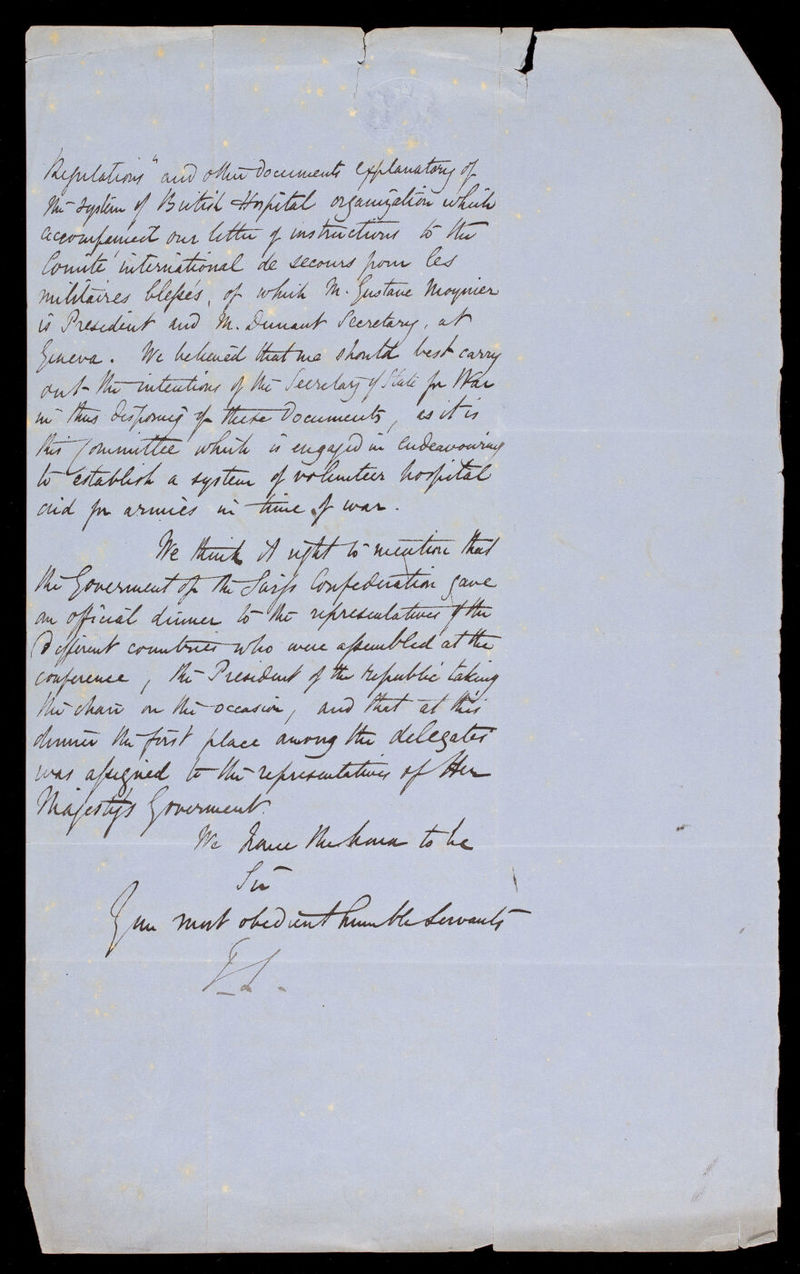 Regulations" and other documents explanatory of
the system of British Hospital organization which
accompanied our letter of instructions to the
Comité international de secours pour les
militaires blessés, of which M. Gustave Moynier
is President and M. Dunant Secretary, at
Geneva. We believed that we should best carry
out the intentions of the Secretary of State for War
in thus disposing of these Documents, as it is
this Committee which is engaged in endeavouring
to establish a system of volunteer hospital
aid for armies in time of war.
We think it right to mention that
the Goverment of the Swiss Confederation gave
an official dinner to the representatives of the
Different countries who were assembled at the
conference, the President of the republic taking
the chair on the occasion, and that at this
dinner the first place among the delegates
was assigned to the representatives of Her
Majesty's Goverment
We have the honor to be
Sir
Your most obedient humble servants